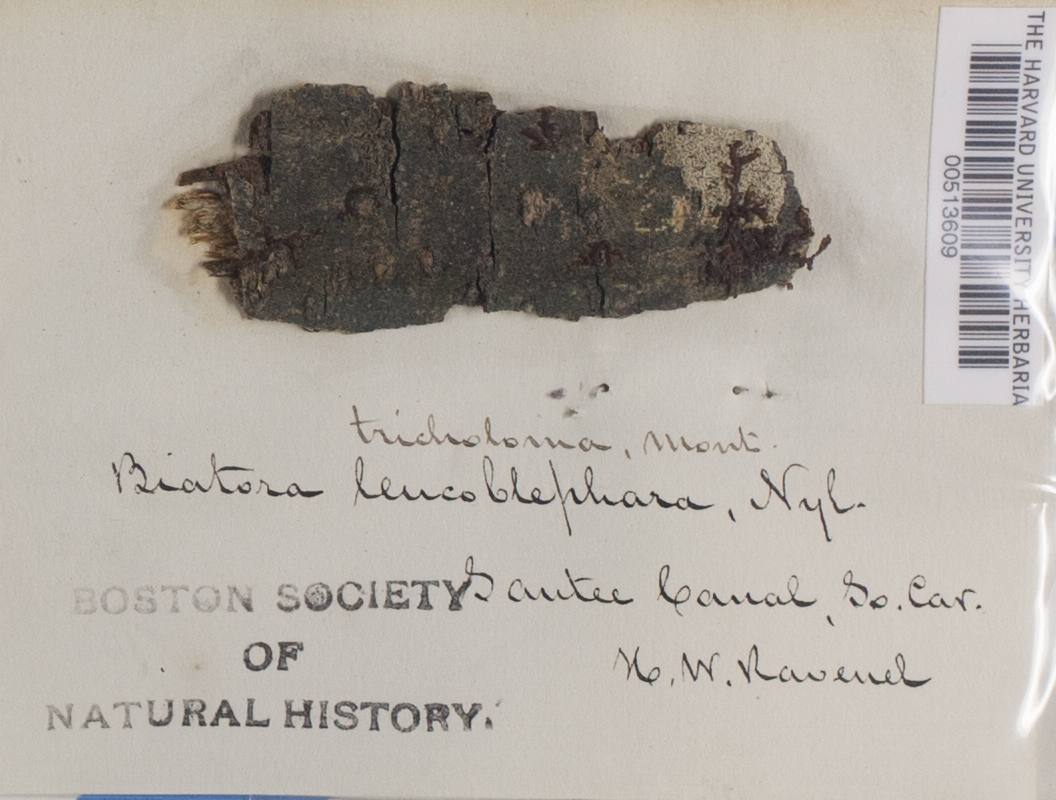 THE HARVARD UNIVERSITY HERBARIA
00513609
tricholoma, Mont.
Biatora leucoblephara, Nyl.
Santee Canal, So. Car.
H. W. Ravenel
BOSTON SOCIETY
OF
NATURAL HISTORY.